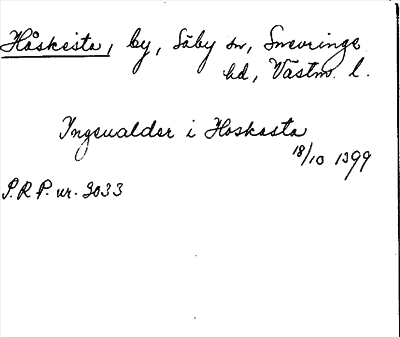 Håskesta, by, Säby sn, Snevringe
hd, Västm. l.
Ingeualder i Hoskasta
18/10 1399
S.R.P. nr. 3033